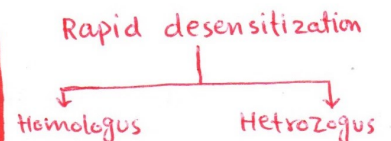 Rapid desensitization
Homologus
Hetrozogus